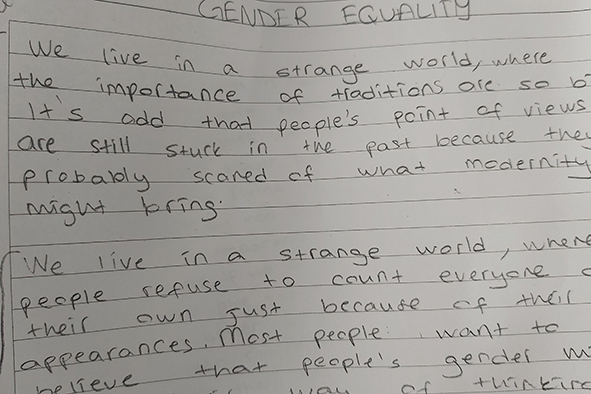 GENDER EQUALITY
We live in a strange world, where
the importance of traditions are so b
It's add that people's point of views
are still stuck in the past because they
probably scared of what modernity
might bring.
We live in a strange world, where
people refuse to count everyone
their own just because of their
appearances. Most people want to
believe that people's gender
way of thinking